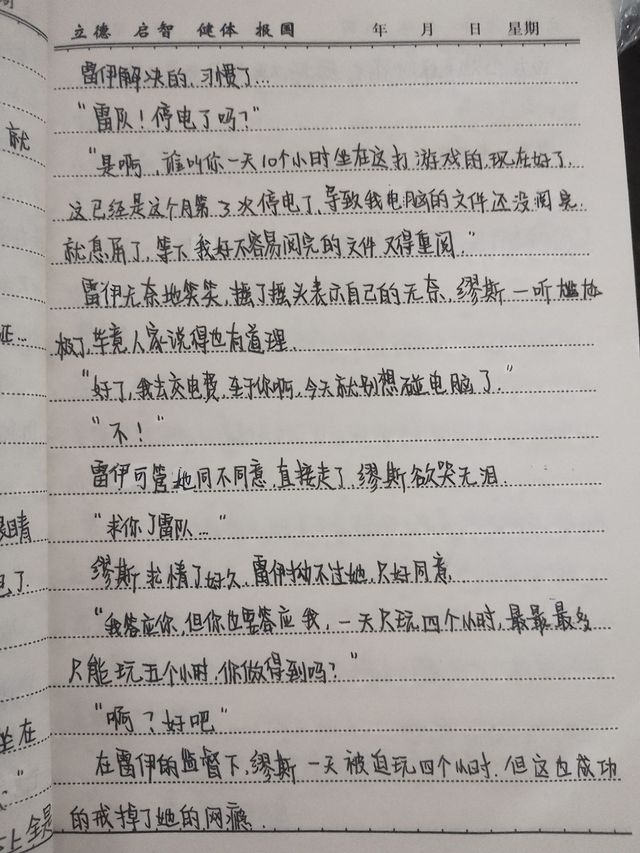 立德 启智 健体 报国 年 月 日 星期
雷伊解决的,习惯了...
"雷队!停电了吗?"
"是啊,谁叫你一天10个小时坐在这打游戏的,现在好了,
这已经是这个月第3次停电了,导致我电脑的文件还没阅完
就息屏了,等下我好不容易阅完的文件又得重阅."
雷伊无奈地笑笑,摇了摇头表示自己的无奈,缪斯一听尴尬
极了,毕竟人家说得也有道理.
"好了,我去交电费,至于你啊,今天就别想碰电脑了."
"不!"
雷伊可管她同不同意,直接走了,缪斯欲哭无泪.
"求你了雷队..."
缪斯求情了好久,雷伊拗不过她,只好同意,
"我答应你,但你也要答应我,一天只玩四个小时,最最最多
只能玩五个小时,你做得到吗?"
"啊?好吧"
在雷伊的监督下,缪斯一天被迫玩四个小时.但这也成功
的戒掉了她的网瘾.
就
正...
眼睛
电了.
坐在
"
上全是